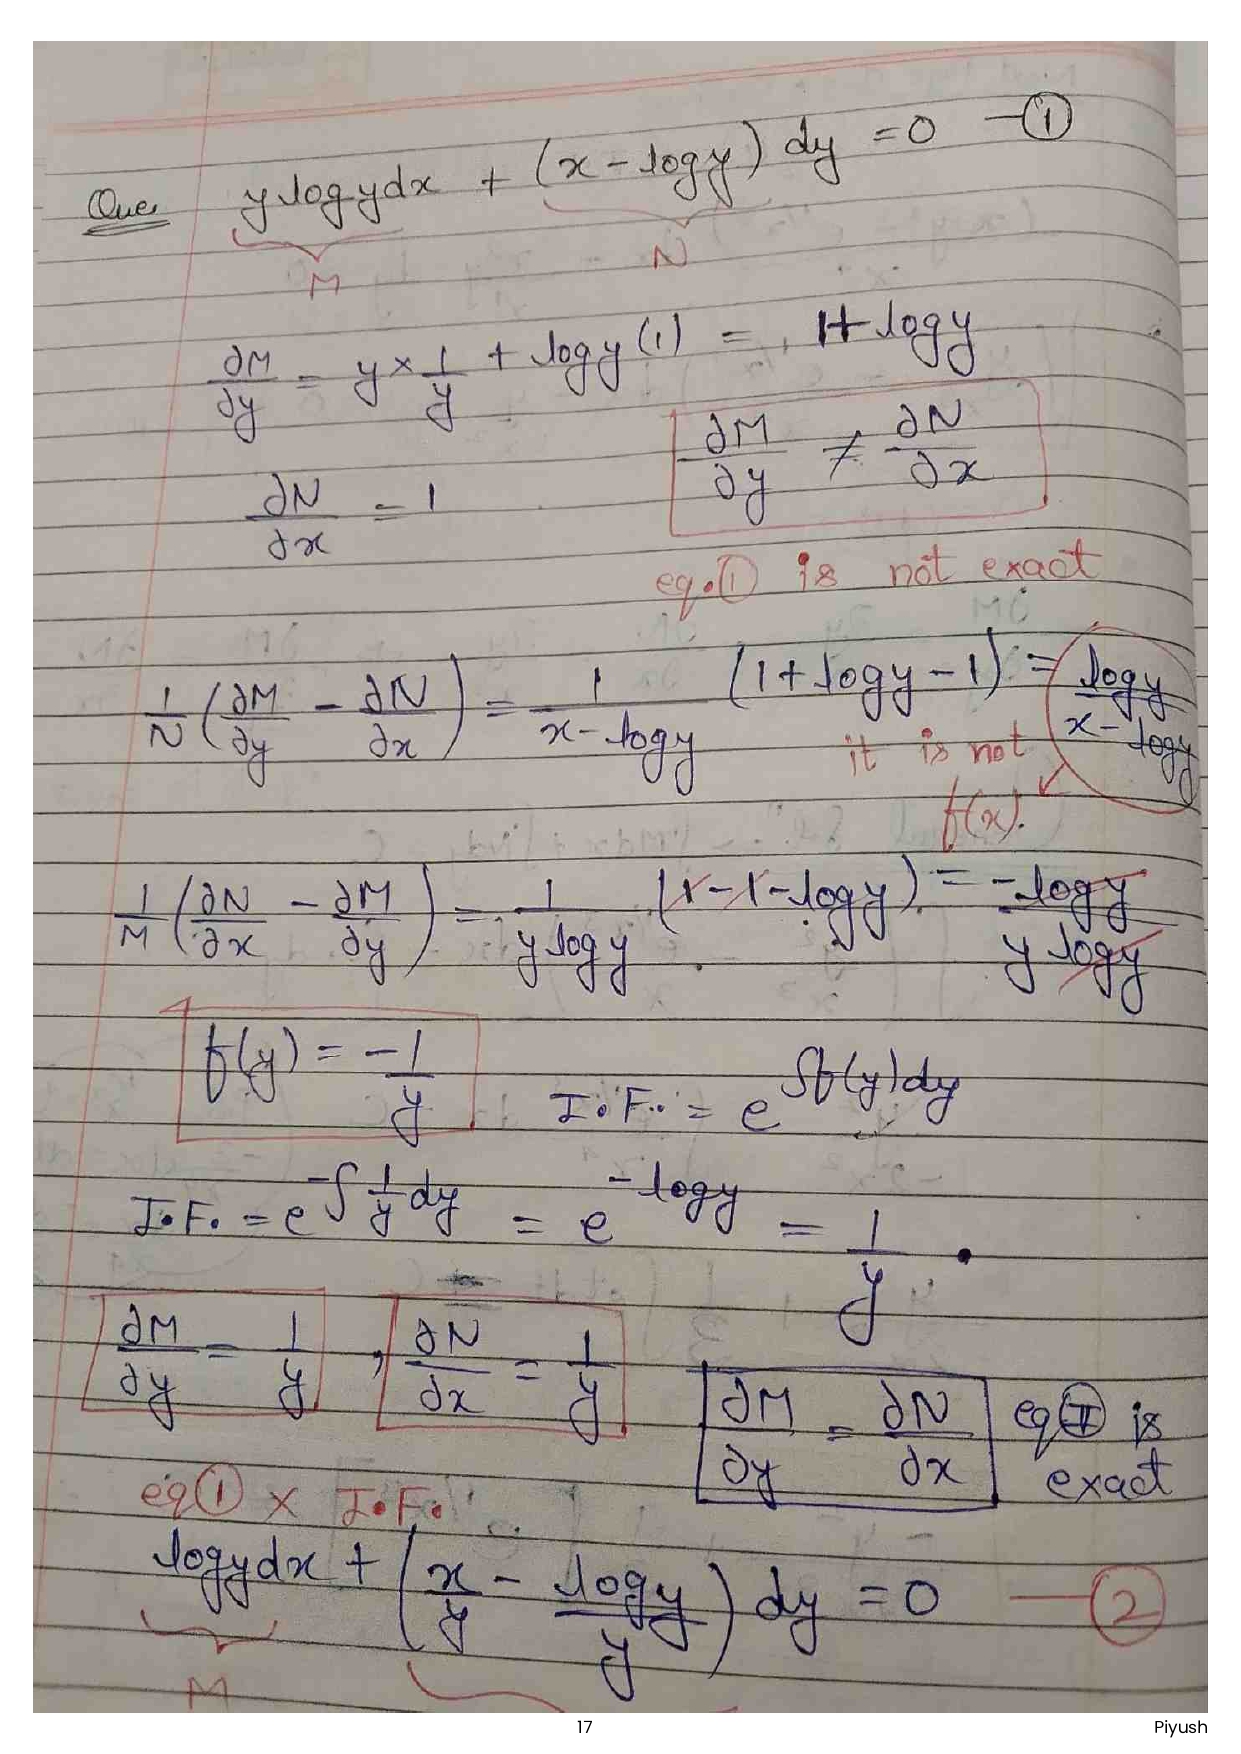 Que. y log y dx + (x - log y) dy = 0 — ①
M N
∂M/∂y = y × 1/y + log y (1) = 1 + log y
∂N/∂x = 1 ∂M/∂y ≠ ∂N/∂x
eq. ① is not exact
1/N (∂M/∂y - ∂N/∂x) = 1/(x - log y) (1 + log y - 1) = log y/(x - log y)
it is not
f(x).
1/M (∂N/∂x - ∂M/∂y) = 1/(y log y) (1 - 1 - log y) = -log y/(y log y)
f(y) = -1/y I.F. = e^∫f(y)dy
I.F. = e^-∫1/y dy = e^-log y = 1/y .
∂M/∂y = 1/y , ∂N/∂x = 1/y ∂M/∂y = ∂N/∂x eq Ⅱ is
exact
eq ① × I.F.
log y dx + (x/y - log y/y) dy = 0 — ②
M
17 Piyush